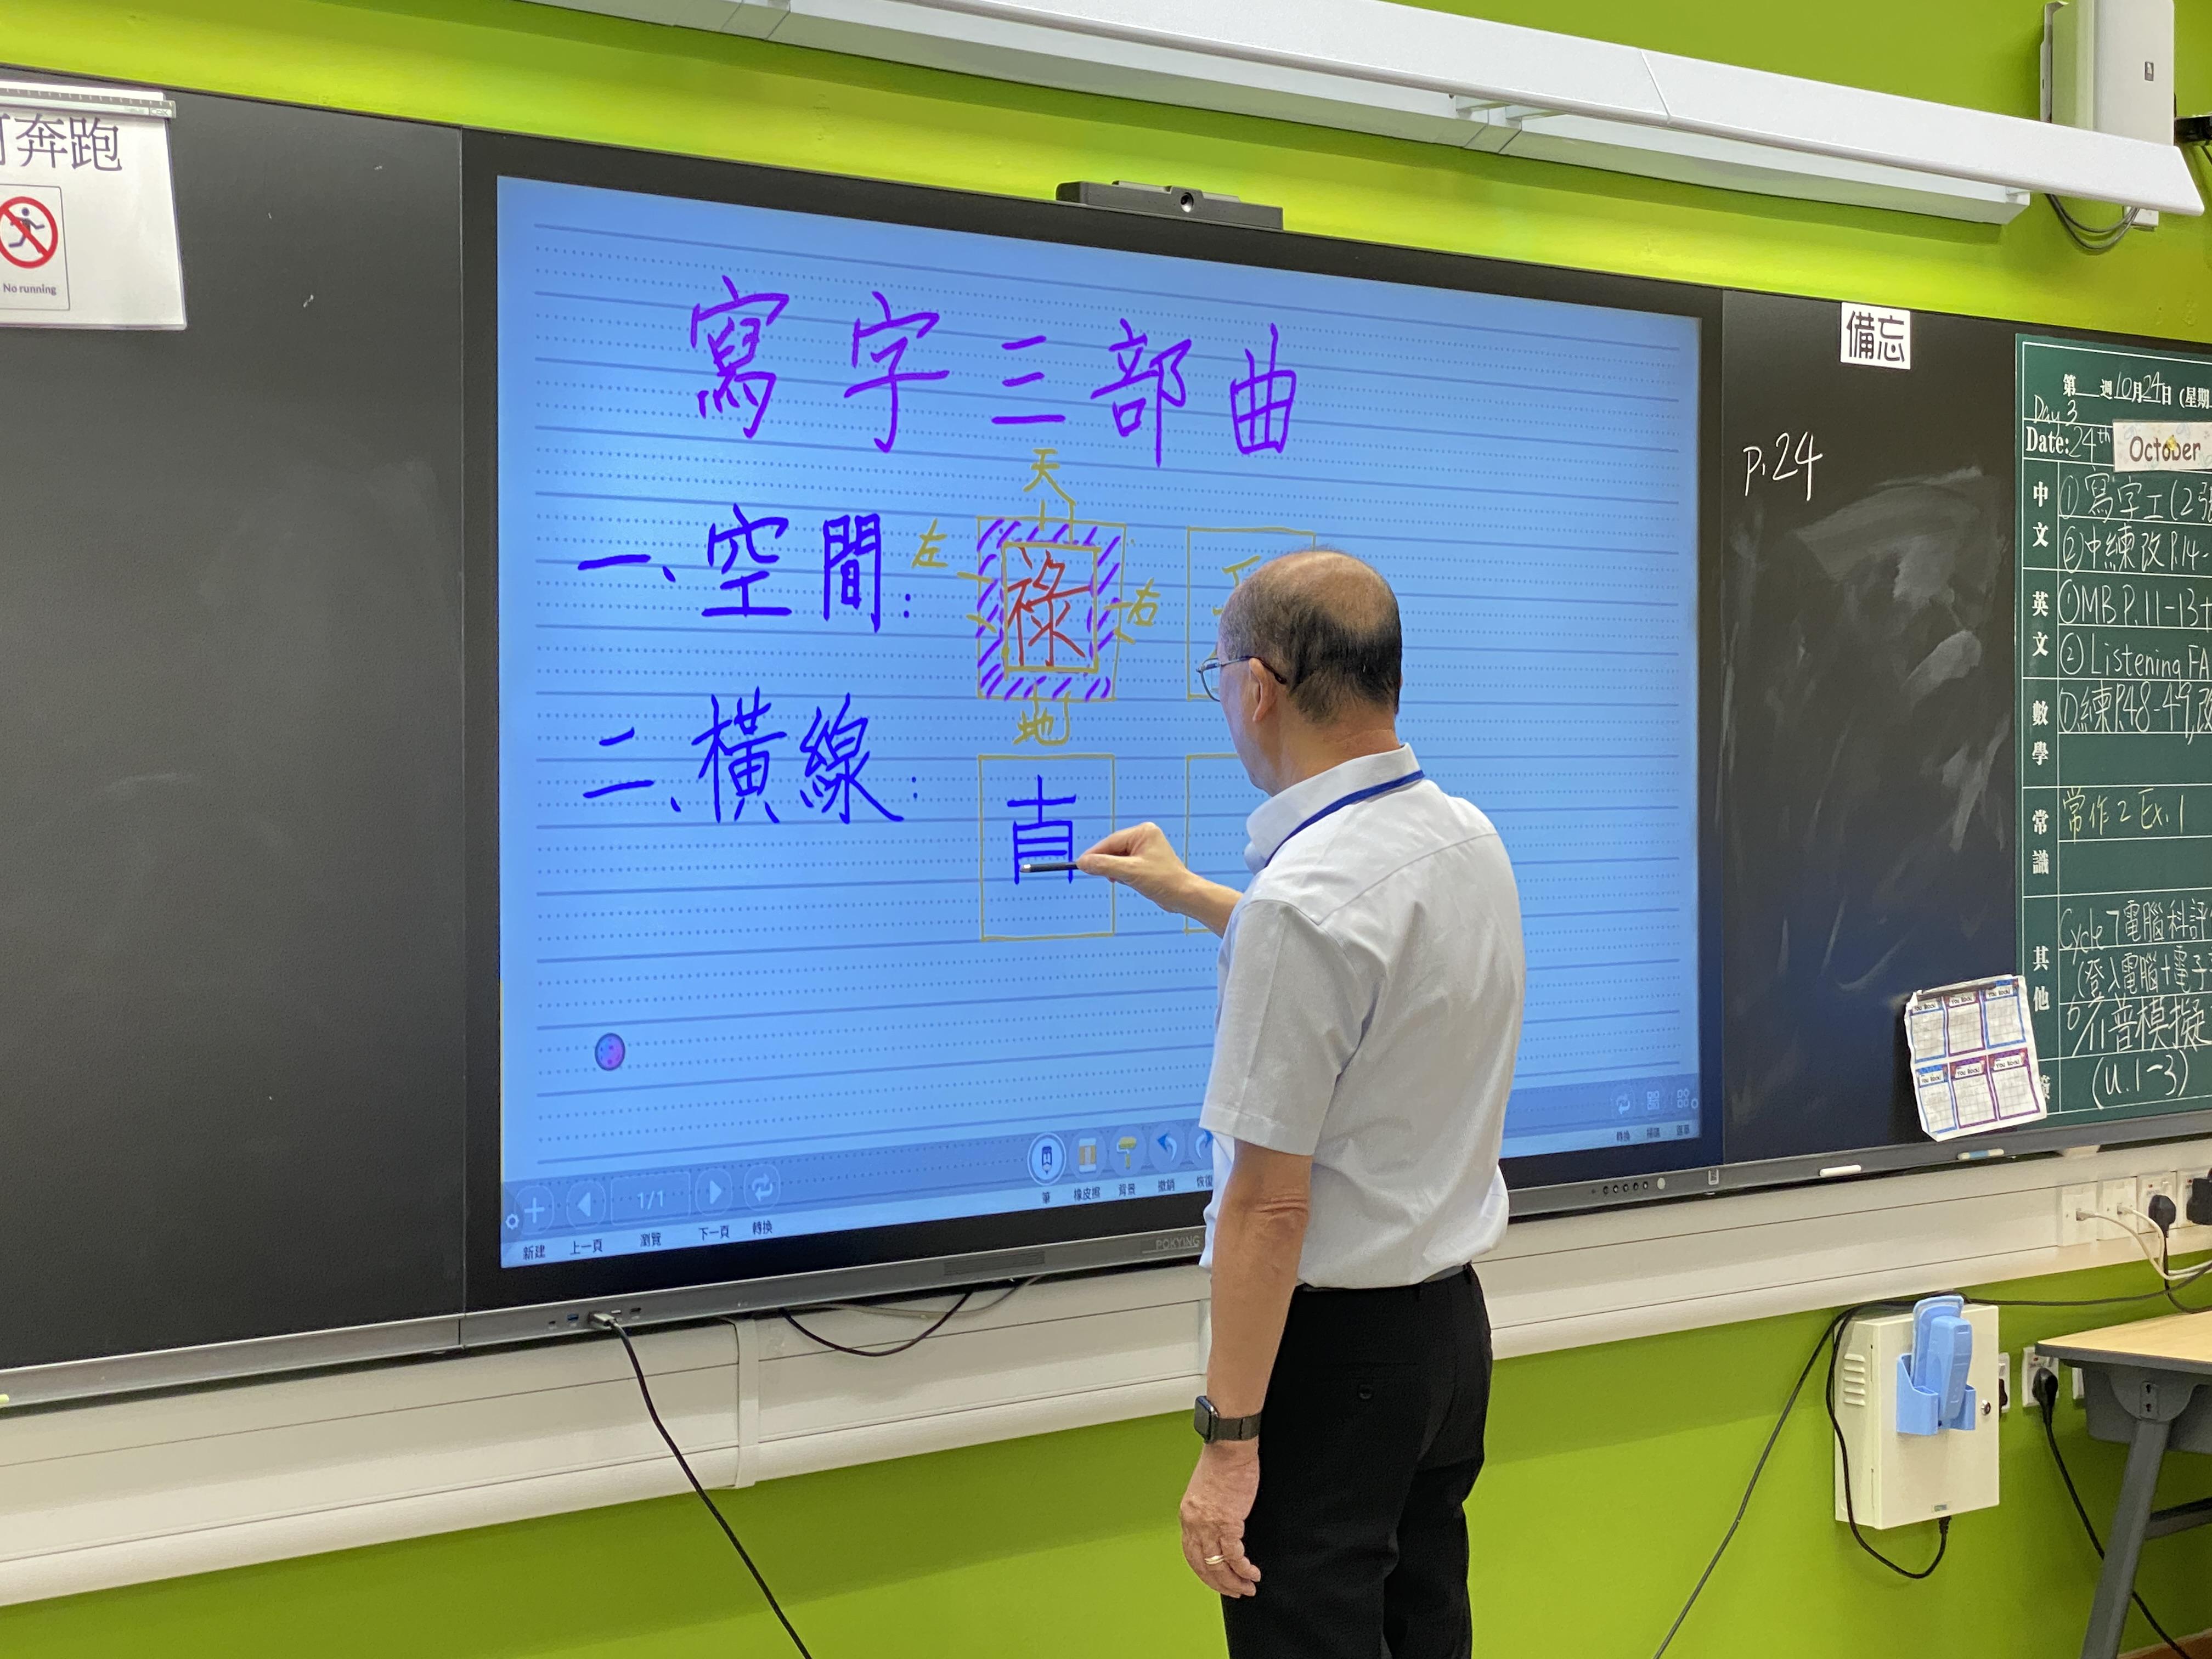 奔跑
No running
寫字三部曲
天
一、空間：
左
祿
右
地
二、橫線：
直
新建
上一頁
1/1
瀏覽
下一頁
轉換
筆
橡皮擦
背景
撤銷
恢復
轉換
POKYING
備忘
P.24
第 週10月24日(星期
Day 3
Date: 24th
October
中文
① 寫字工(2張
② 中練改P.14-
英文
① MB P.11-13+
② Listening FA
數學
① 練P.48-49,改
常識
常作2 Ex.1
其他
Cycle 7 電腦科評
(登入電腦+電子
普模擬
(U.1-3)